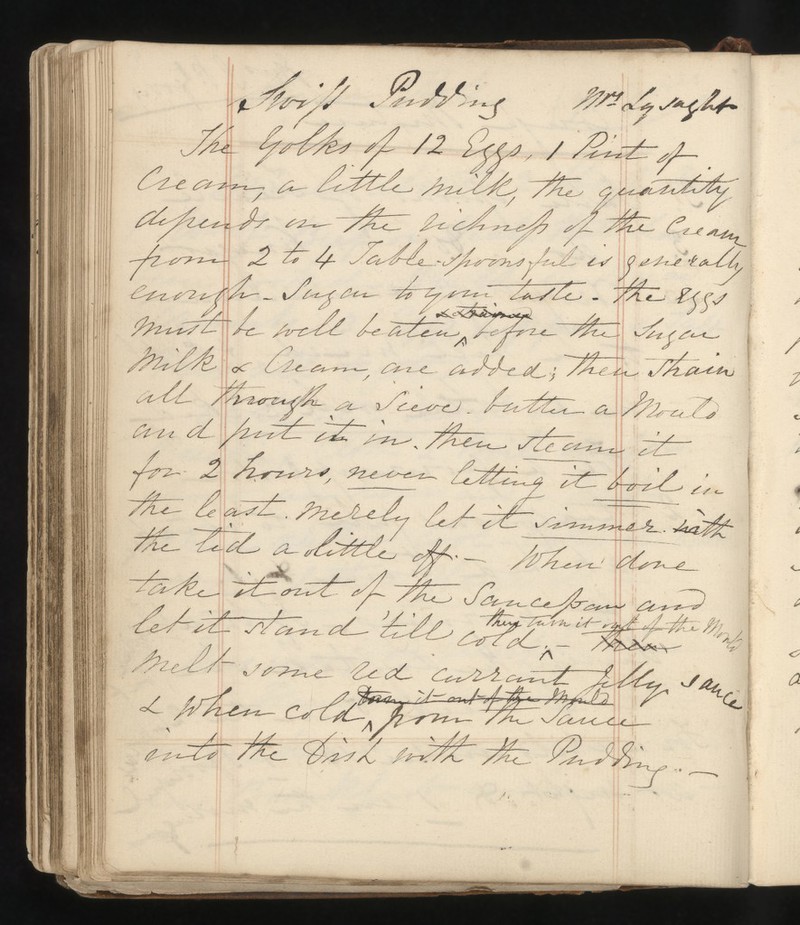 Swiss Pudding Mrs Lysaght
The Yolks of 12 Eggs, 1 Pint of
Cream, a little milk, the quantity
depends on the richness of the Cream
from 2 to 4 Table-spoonsful is generally
enough - Sugar to your taste - the Eggs
& strained
must be well beaten before the Sugar
Milk & Cream, are added; then strain
all through a Sieve. butter a Mould
and put it in. then steam it
for 2 hours, never letting it boil in
the least. merely let it simmer with
the lid a little off. - When done
take it out of the Saucepan and
then turn it out of the Mould
let it stand 'till cold. - then
Melt some red currant Jelly sauce
turn it out of the Mould
& when cold pour the Sauce
into the Dish with the Pudding. -